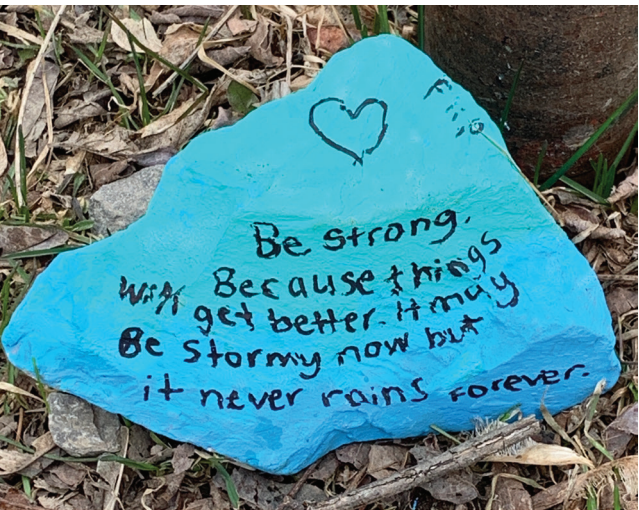 Be strong.
Because things
will get better. It may
Be stormy now but
it never rains forever.